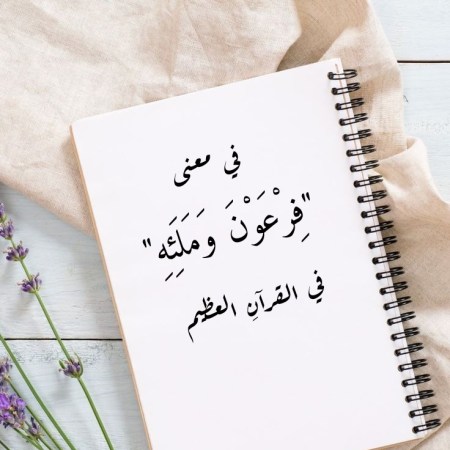 في معنى
"فِرْعَوْنَ وَمَلَئِهِ"
في القرآنِ العظيم